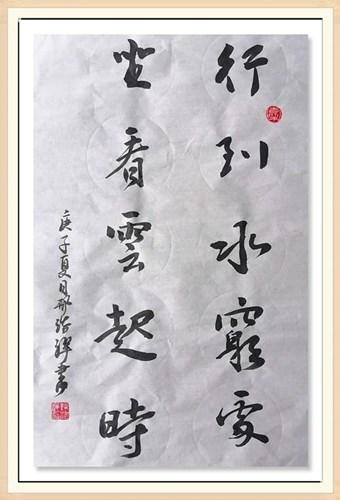 行到水窮處
坐看雲起時
庚子夏月邢治譯書